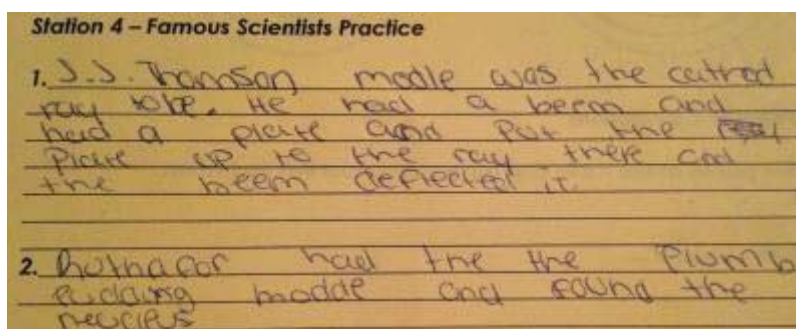 Station 4 – Famous Scientists Practice
1. J.J. Thomson modle was the cathod
ray tobe. He had a beem and
had a plate and put the
plate up to the ray there and
the beem deflected it
2. Ruthafor had the the Plumb
pudding modde and found the
neucleus